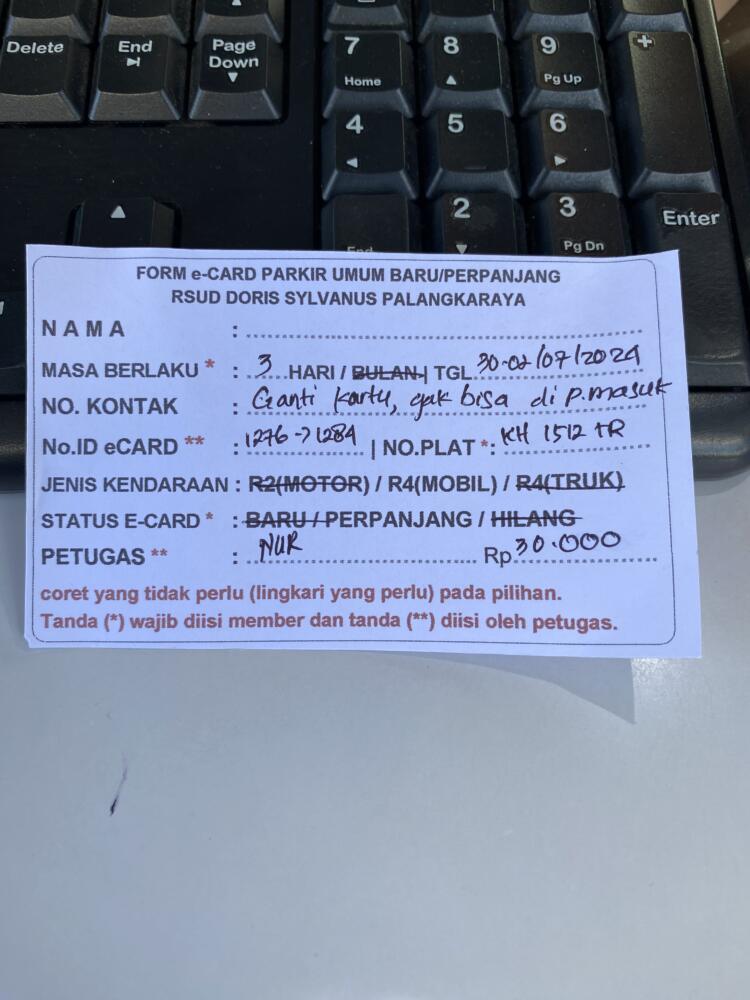 Delete
End
Page Down
7 Home
8
9 Pg Up
+
4
5
6
2
3 Pg Dn
Enter
End
FORM e-CARD PARKIR UMUM BARU/PERPANJANG
RSUD DORIS SYLVANUS PALANGKARAYA
NAMA :
MASA BERLAKU * : 3 HARI / BULAN | TGL 30-02/07/2024
NO. KONTAK : Ganti kartu, gak bisa di p.masuk
No.ID eCARD ** : 1276 -> 1284 | NO.PLAT *: KH 1512 TR
JENIS KENDARAAN : R2(MOTOR) / R4(MOBIL) / R4(TRUK)
STATUS E-CARD * : BARU / PERPANJANG / HILANG
PETUGAS ** : NUR Rp 30.000
coret yang tidak perlu (lingkari yang perlu) pada pilihan.
Tanda (*) wajib diisi member dan tanda (**) diisi oleh petugas.